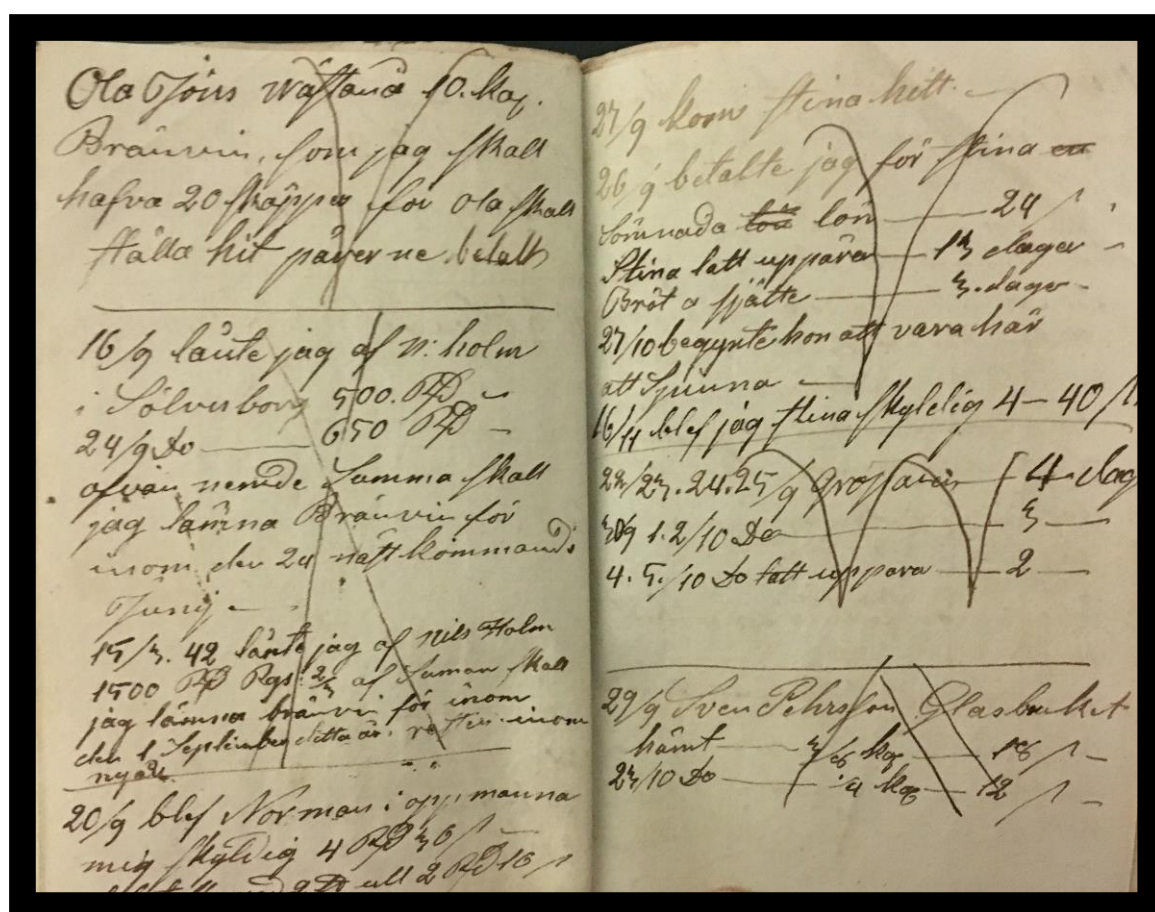 Ola Jöns Wästana 10. kap.
Bränvin, som jag skall
hafva 20 skäppor for Ola skall
ställa hit päverne betalt
16/9 länte jag af N: holm
i Sölvesborg 500. RD
24/9 Do 650 RD
ofvan nemde summa skall
jag lämna Bränvin för
inom den 24 nästkommande
Junij
15/3. 42 länte jag af Nils Holm
1500 RD Rgs: 2/3 af Suman skall
jag lämna bränvin för inom
den 1 September detta år. resten inom
nyår.
20/9 blef Norman i oppmanna
mig skyldig 4 RD 36 s
ull 2 RD 16 s
27/9 kom stina hitt.
26/9 betalte jag för stina en
Sömnada lön lön 24 s
Stina tatt uppära 13 dagar
Bröt o 3. dagar
27/10 begynte hon att vara här
att Spinna
16/11 blef jag stina skyldig 4 - 40 s
22/23. 24. 25/9 4 dag
30/9 1. 2/10 Do 3
4. 5. /10 Do tatt uppara 2
29/9 Sven Pehrsson Glasbruket
hämt 3/8 kap 18 s
23/10 Do 1/4 kap 12 s